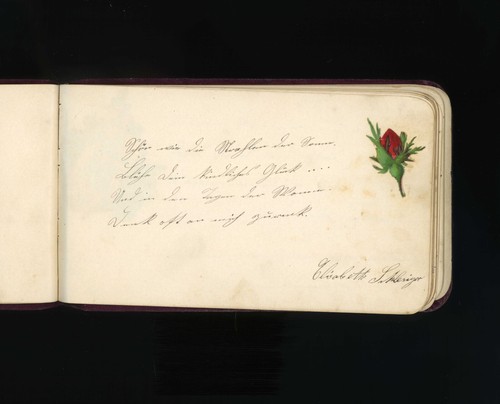 Schön wie die Strahlen der Sonne,
Blühe Dein kindliches Glück ....
Und in den Tagen der Wonne ...
Denk oft an mich zurück.
Elisabeth